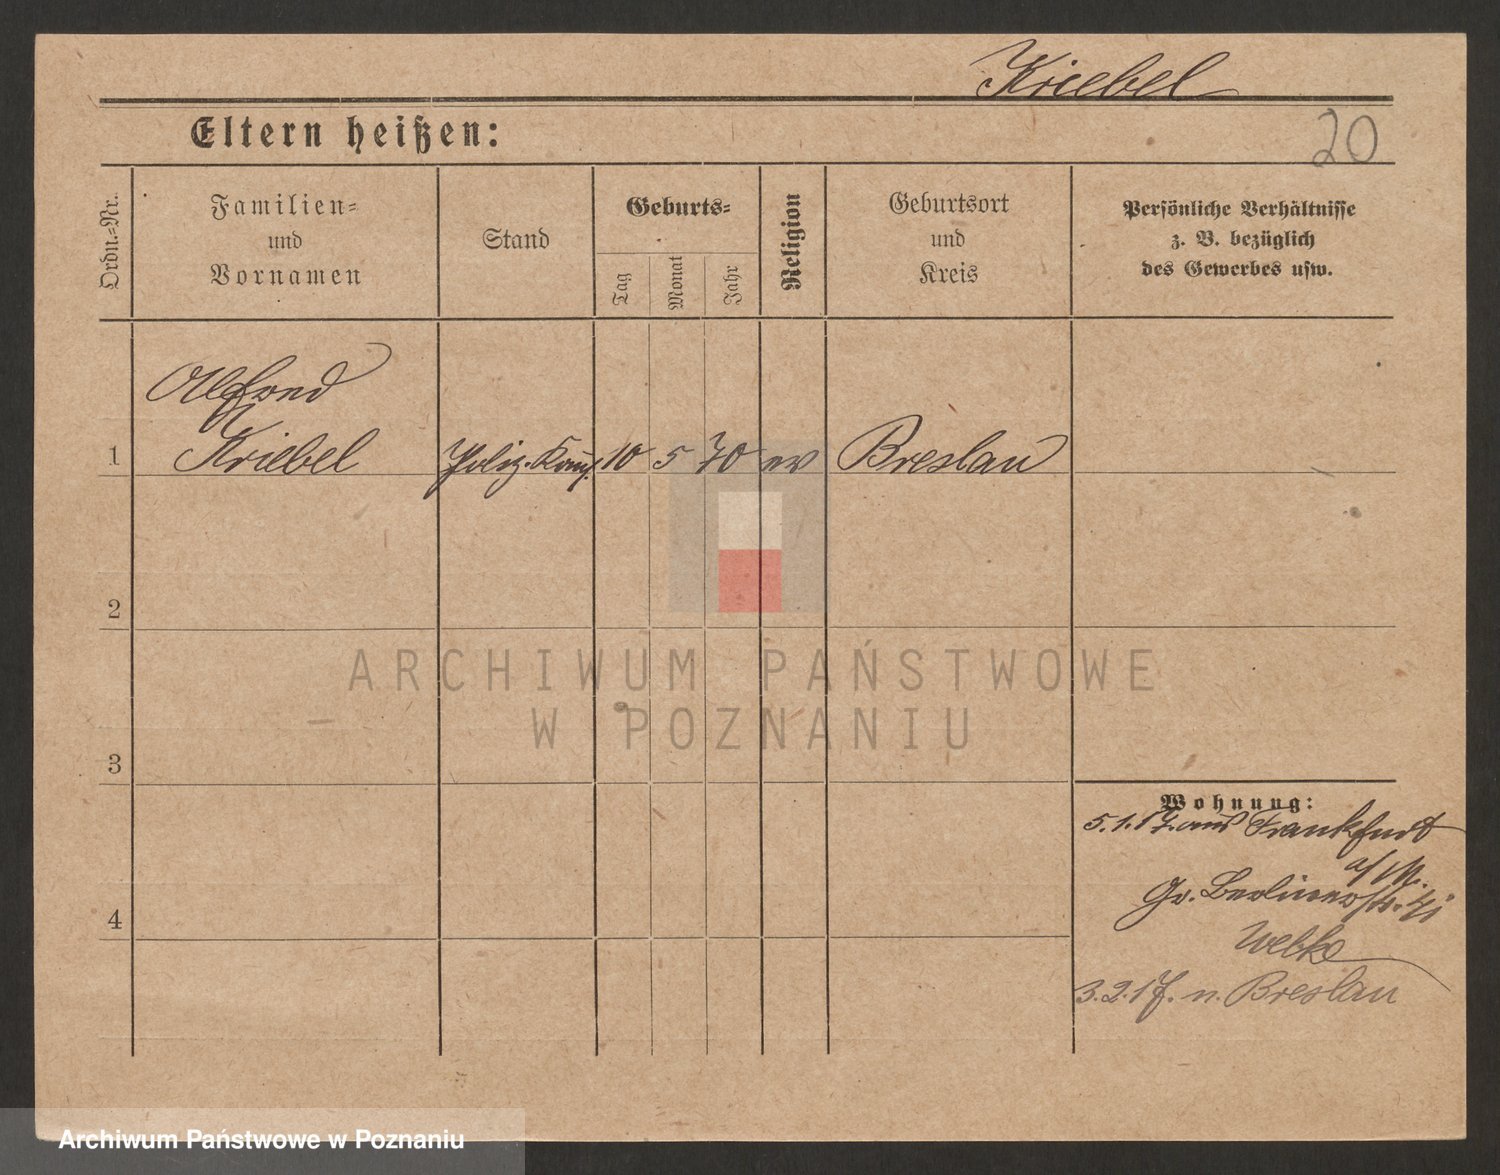 Kriebel
20
Eltern heißen:
Ordn.-Nr.
Familien-
und
Vornamen
Stand
Geburts-
Tag
Monat
Jahr
Religion
Geburtsort
und
Kreis
Persönliche Verhältnisse
z. B. bezüglich
des Gewerbes usw.
Alfred
1 Kriebel Poliz. 10 5 70 ev Breslau
2
ARCHIWUM PAŃSTWOWE
W POZNANIU
3
Wohnung:
5.1.17. aus Frankfurt
a/M.
Gr. Berlinerstr.
4
Welke
3.2.17. n. Breslau
Archiwum Państwowe w Poznaniu